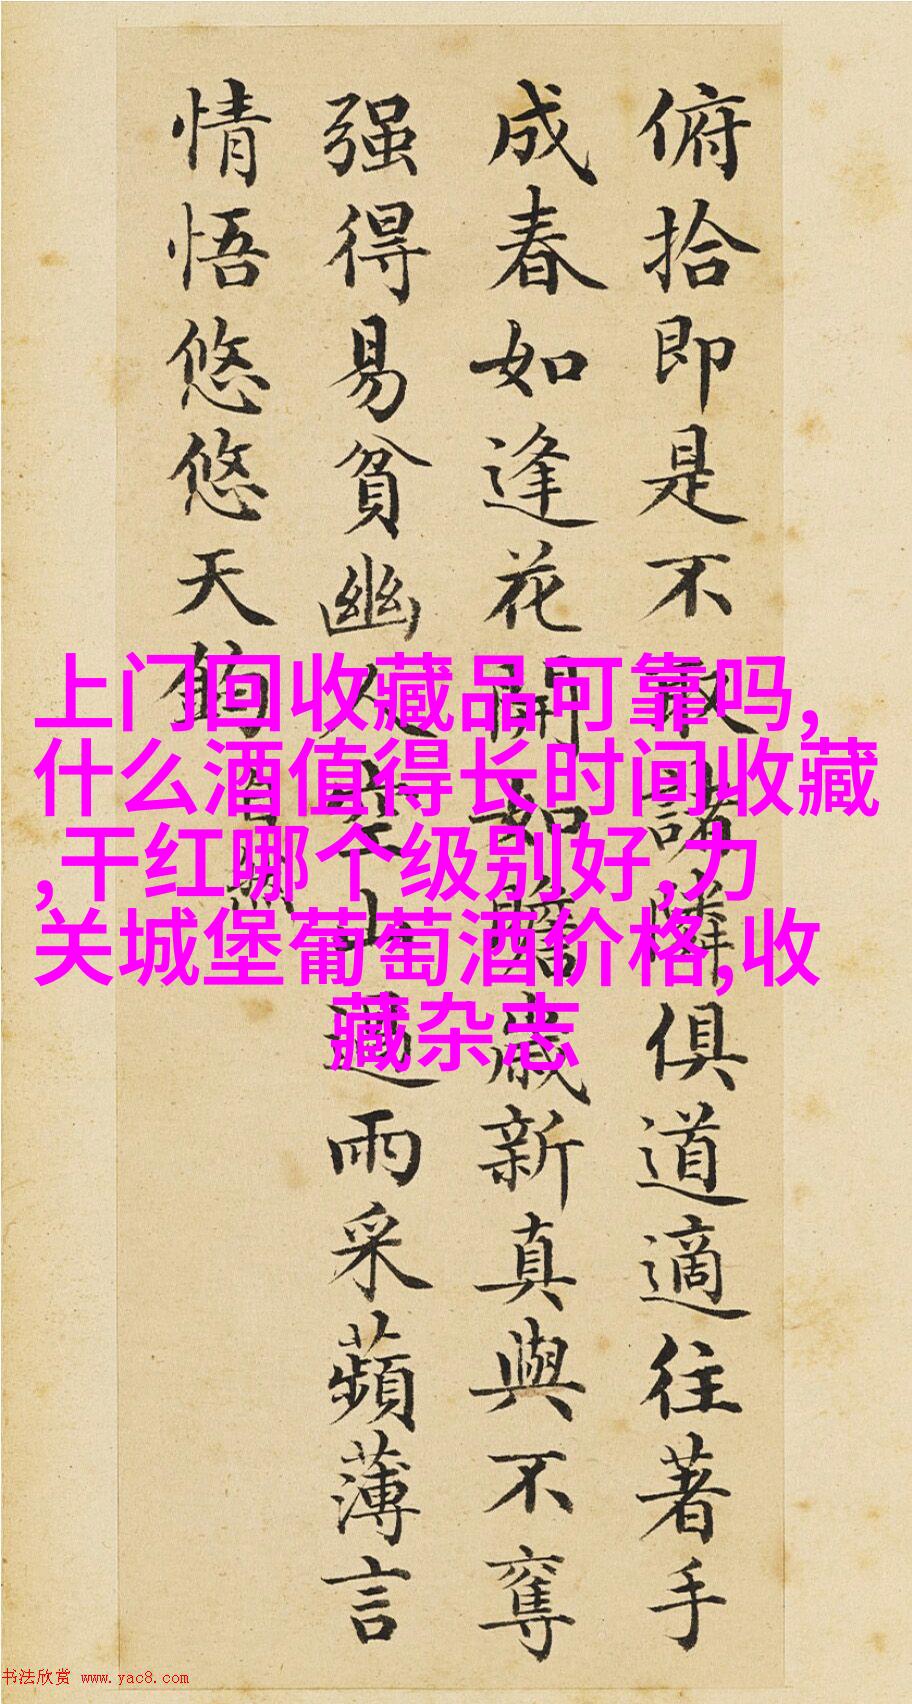 俯拾即是不取諸隣俱道適往著手
成春如逢花開如瞻歲新真與不奪
强得易貧幽人空山過雨采蘋薄言
情悟悠悠天鈞
自然
上门回收藏品可靠吗,
什么酒值得长时间收藏
,干红哪个级别好,力
关城堡葡萄酒价格,收
藏杂志
书法欣赏 www.yac8.com